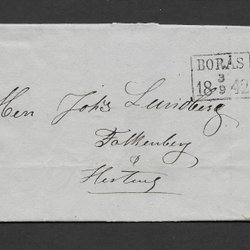 BORÅS
3
18 42
9
Herr Johs Lundberg
Falkenberg
&
Herting